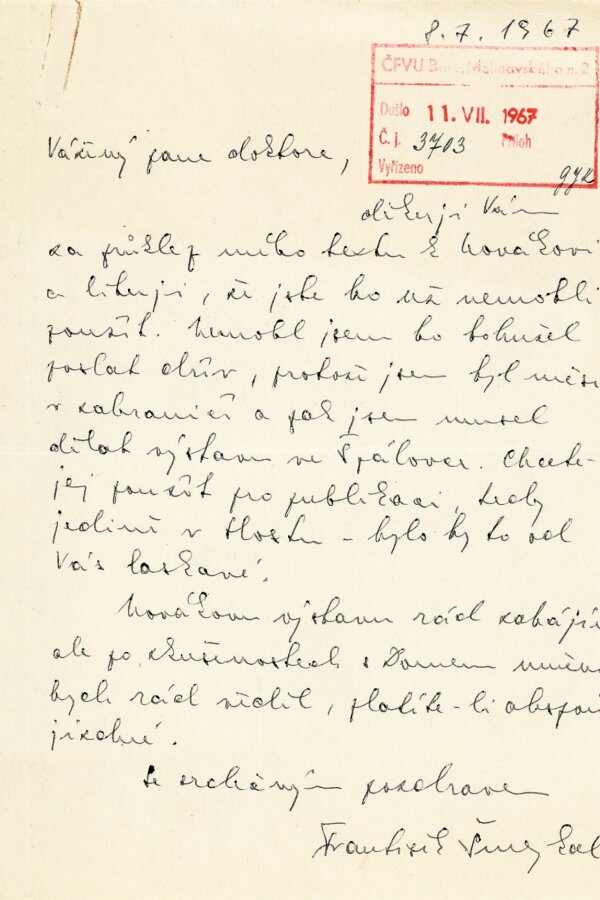 8.7.1967
ČFVU Brno, Malinovského n. 2
Došlo 11. VII. 1967
Č. j. 3703 Příloh
Vyřízeno
Vážený pane doktore,
děkuji Vám
za průklep mého textu k Novákovi
a lituji, že jste ho už nemohli
použít. Nemohl jsem ho bohužel
poslat dřív, protože jsem byl měs
v zahraničí a pak jsem musel
dělat výstavu ve Špálovce. Chcete-
jej použít pro publikaci, tedy
jedině v
– bylo by to od
Vás laskavé.
Novákovu výstavu rád zaháji
ale po zkušenostech s Domem umění
bych rád věděl, platíte-li aspoň
jízdné.
Se srdečným pozdravem
František Šmejkal